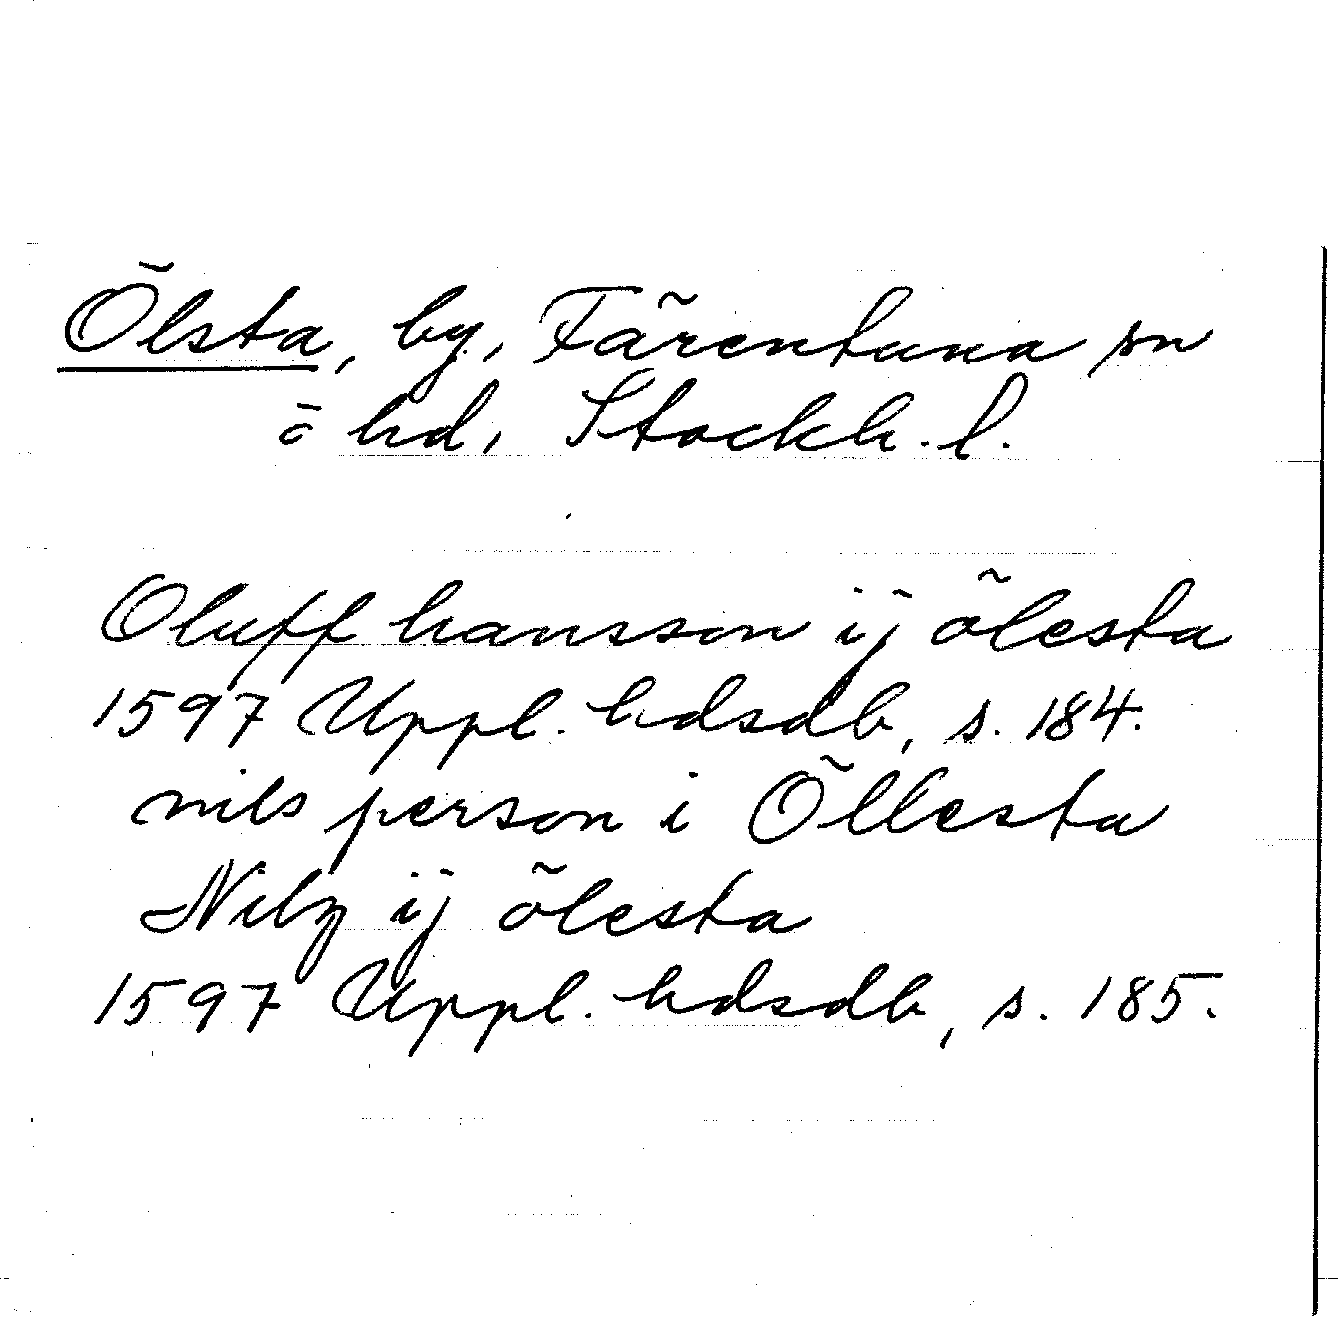 Ölsta, by, Färentuna sn
o hd, Stockh. l.
Oluff hansson ij ölesta
1597 Uppl. hdsdb, s. 184.
nils person i Öllesta
Nilz ij ölesta
1597 Uppl. hdsdb, s. 185.